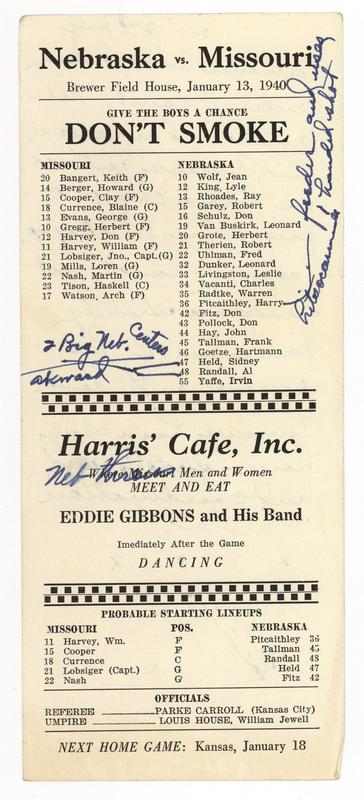 Nebraska vs. Missouri
Brewer Field House, January 13, 1940
GIVE THE BOYS A CHANCE
DON'T SMOKE
MISSOURI
20 Bangert, Keith (F)
14 Berger, Howard (G)
15 Cooper, Clay (F)
18 Currence, Blaine (C)
13 Evans, George (G)
10 Gregg, Herbert (F)
12 Harvey, Don (F)
11 Harvey, William (F)
21 Lobsiger, Jno., Capt. (G)
19 Mills, Loren (G)
22 Nash, Martin (G)
23 Tison, Haskell (C)
17 Watson, Arch (F)
NEBRASKA
10 Wolf, Jean
12 King, Lyle
13 Rhoades, Ray
15 Garey, Robert
16 Schulz, Don
19 Van Buskirk, Leonard
20 Grote, Herbert
21 Therien, Robert
22 Uhlman, Fred
32 Dunker, Leonard
33 Livingston, Leslie
34 Vacanti, Charles
35 Radtke, Warren
36 Fitcaithley, Harry
42 Fitz, Don
43 Pollock, Don
44 Hay, John
45 Tallman, Frank
46 Goetze, Hartmann
47 Held, Sidney
48 Randall, Al
55 Yaffe, Irvin
2 Big Neb. Centers
akward
Harris' Cafe, Inc.
Where Missouri Men and Women
Neb
MEET AND EAT
EDDIE GIBBONS and His Band
Imediately After the Game
DANCING
PROBABLE STARTING LINEUPS
MISSOURI POS. NEBRASKA
11 Harvey, Wm. F Pitcaithley 36
15 Cooper F Tallman 45
18 Currence C Randall 48
21 Lobsiger (Capt.) G Held 47
22 Nash G Fitz 42
OFFICIALS
REFEREE PARKE CARROLL (Kansas City)
UMPIRE LOUIS HOUSE, William Jewell
NEXT HOME GAME: Kansas, January 18